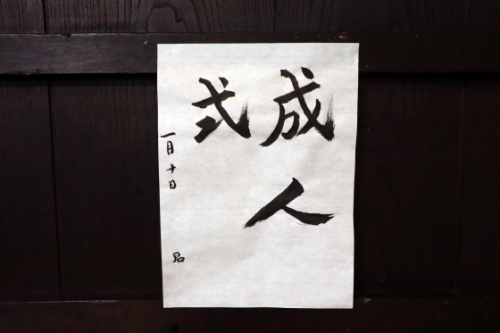 成人
式
一月十日